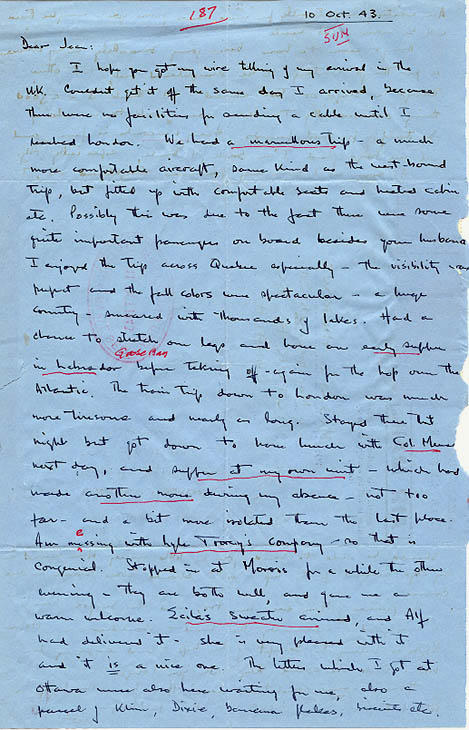 187
10 Oct. 43.
SUN
Dear Jean:
I hope you got my wire telling of my arrival in the
UK. Couldn't get it off the same day I arrived, because
there were no facilities for sending a cable until I
reached London. We had a marvellous trip - a much
more comfortable aircraft, same kind as the west-bound
trip, but fitted up with comfortable seats and heated cabin
etc. Possibly this was due to the fact there were some
quite important passengers on board besides your husband
I enjoyed the trip across Quebec especially - the visibility was
perfect and the fall colors were spectacular - a huge
country - smeared with thousands of lakes. Had a
chance to stretch our legs and have an early supper
Goose Bay
in Labrador before taking off again for the hop over the
Atlantic. The train trip down to London was much
more tiresome and nearly as long. Stayed there that
night but got down to have lunch with Col.
next day, and supper at my own unit - which had
made another move during my absence - not too
far - and a bit more isolated than the last place.
Am messing with Lyle Tracy's company - so that is
congenial. Stopped in at for a while the other
evening - they are both well, and gave me a
warm welcome. sweater arrived, and Alf
had delivered it - she is very pleased with it
and it is a nice one. The letters which I got at
Ottawa were also here waiting for me, also a
parcel of Klim, Dixie, banana flakes, biscuits etc.